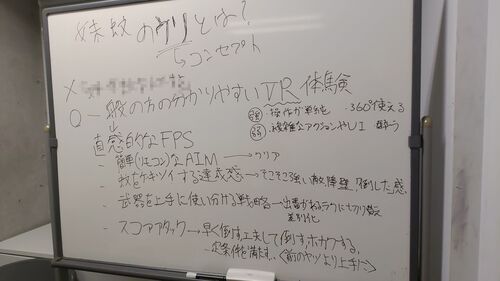 姉蚊のウリとは?
コンセプト
×
○ 一般の方の分かりやすいVR体験
強 操作が単純 ・360°使える
弱 複雑なアクションやUI 酔う
直感的なFPS
- 簡単(リモコン)なAIM → クリア
- 蚊をタイジする達成感 → そこそこ強い敵、障壁「倒した」感
- 武器を上手に使い分ける戦略
差別化
- スコアアタック → 早く倒す工夫して倒す、ボカワする
一定条件を満たす、〈前のヤツより上手に〉